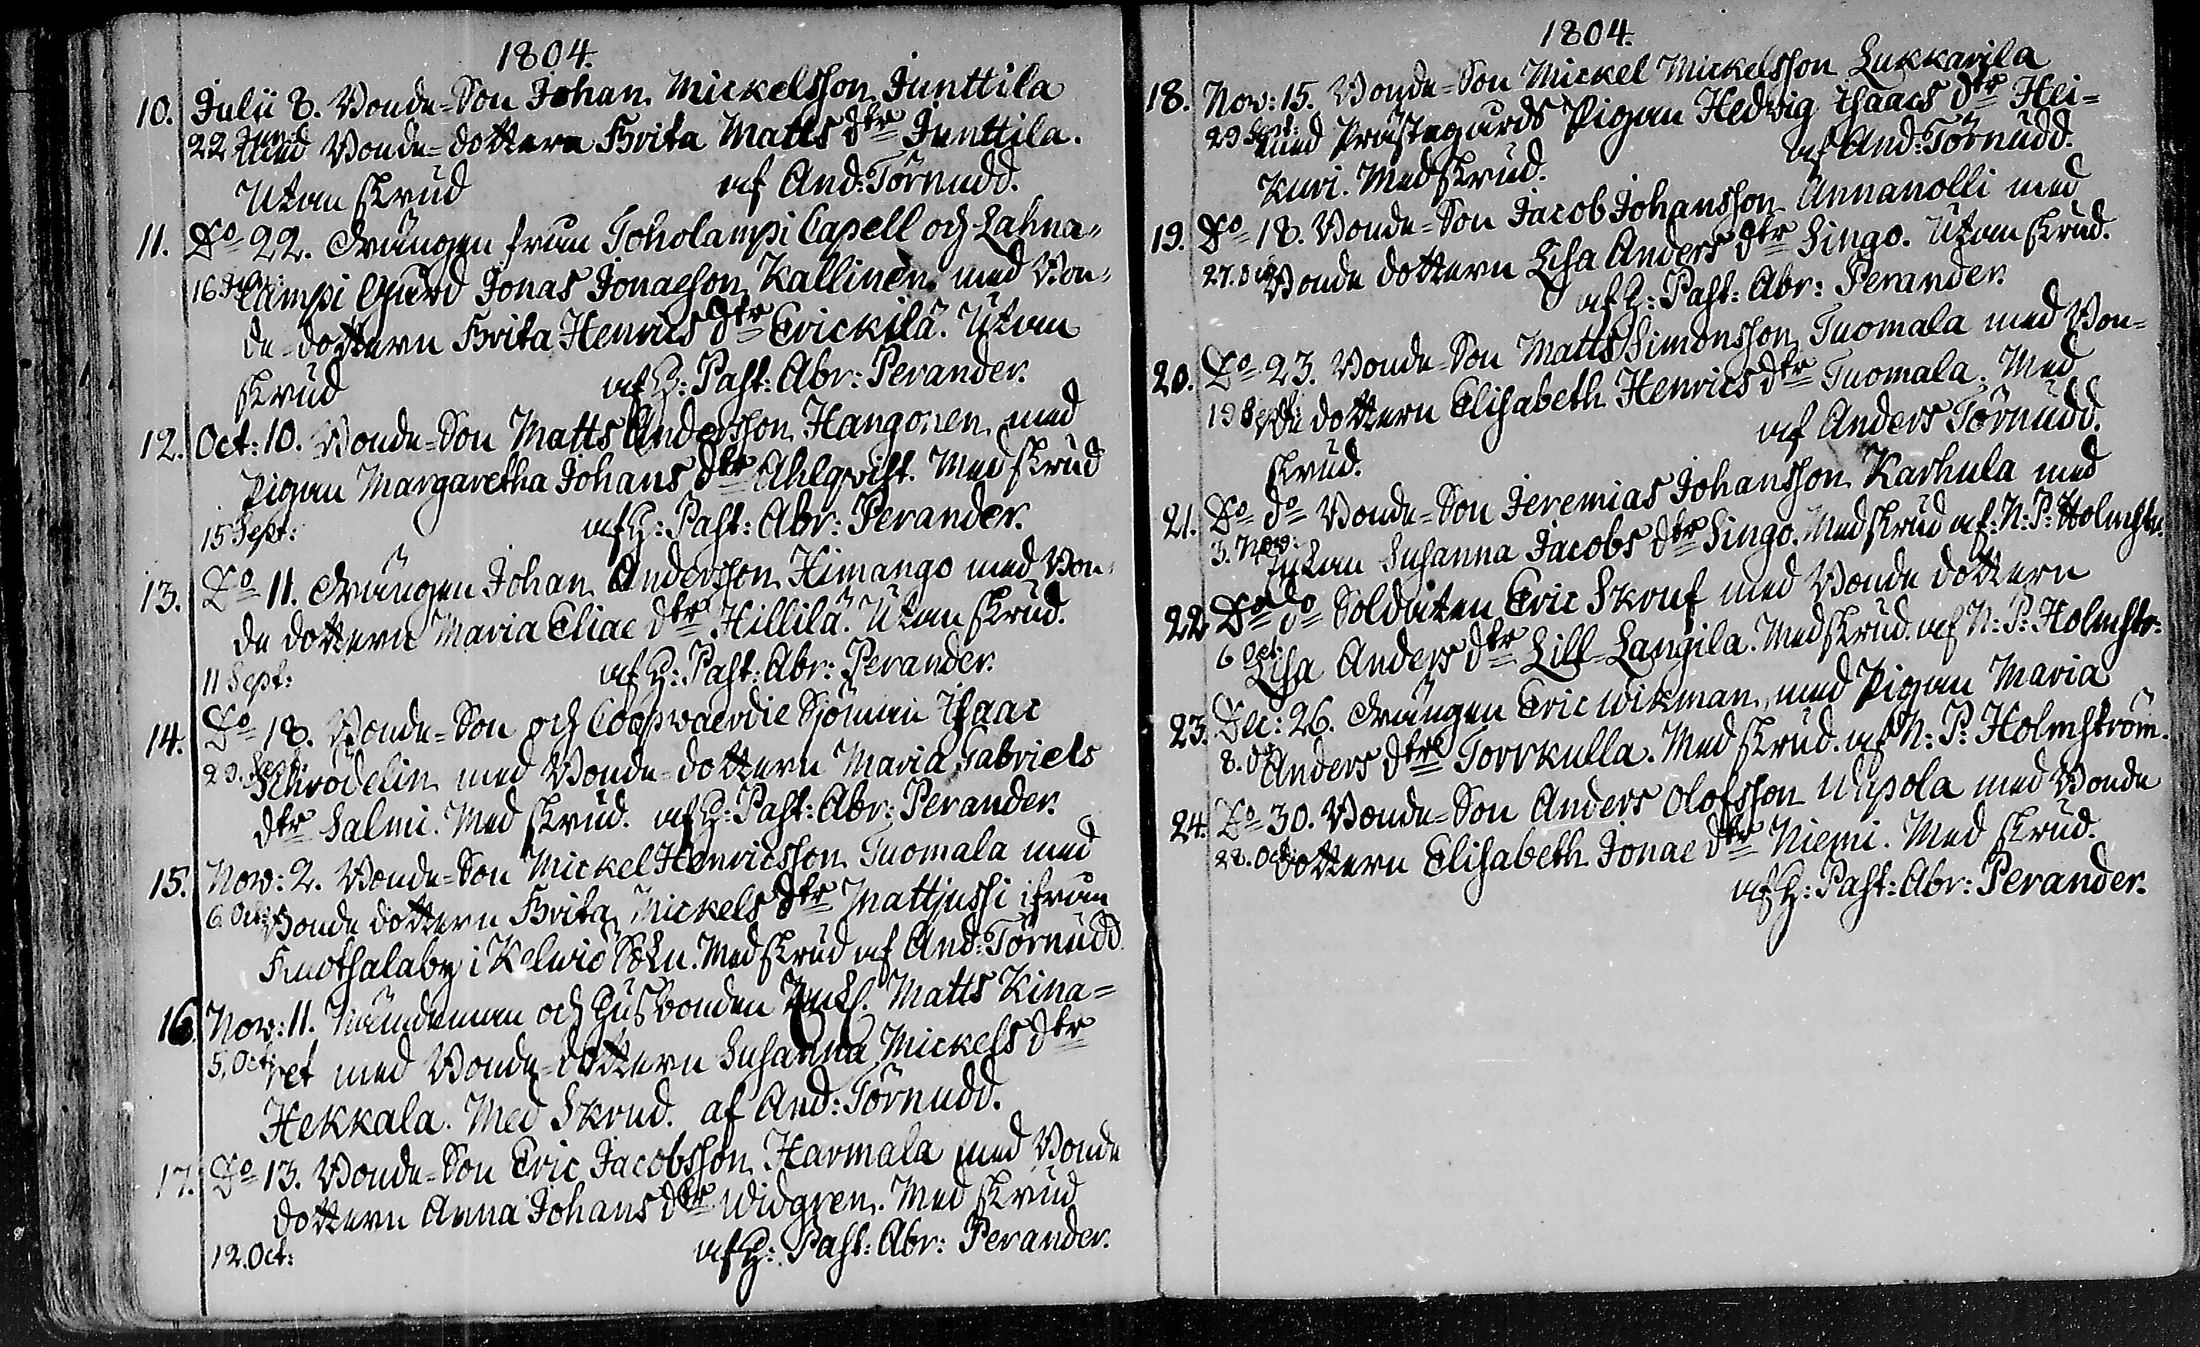 1804.
10. Julii 8. Bonde-Son Johan Mickelsson Junttila
22 Junii med Bonde-dottern Brita Matts dtr Junttila.
Utan skrud af And: Törnudd.
11. Do 22. Drängen från Toholampi Capell och Lahna-
lampi Gård Jonas Jonaeson Kallinen med Bon-
de-dottern Brita Henrics dtr Erickilä. Utan
skrud af H: Past: Abr: Perander.
12. Oct: 10. Bonde-Son Matts Andersson Hangonen med
Pigan Margaretha Johans dtr Ahlqvist. Med skrud
15 Sept: af H: Past: Abr: Perander.
13. Do 11. Drängen Johan Andersson Himango med Bon-
de dottern Maria Eliae dtr Hillilä. Utan skrud.
11 Sept: af H: Past: Abr: Perander.
14. Do 18. Bonde-Son och Coopvaerdie Sjöman Isaac
29. Sept: Schrodelin med Bonde-dottern Maria Gabriels
dtr Salmi. Med skrud. af H: Past: Abr: Perander.
15. Nov: 2. Bonde-Son Mickel Henricsson Tuomala med
6. Oct: Bonde dottern Brita Mickels dtr Mattjussi ifrån
i Kelviå Sokn. Med skrud af And: Törnudd
16. Nov: 11. Nämdeman och Husbonden Matts Kina-
5. Oct: ret med Bonde-dottern Susanna Mickels dtr
Hekkala. Med Skrud. af And: Törnudd.
17. Do 13. Bonde-Son Eric Jacobsson Harmala med Bonde
dottern Anna Johans dtr Widgren. Med skrud
12. Oct: af H: Past: Abr: Perander.
1804.
18. Nov: 15. Bonde-Son Mickel Mickelsson Lukkarila
29 Sept: med Prästegårds Pigan Hedvig Isaacs dtr Hei-
kuri. Med skrud. af And: Törnudd.
19. Do 18. Bonde-Son Jacob Johansson Annanolli med
27. Oct: Bonde dottern Lisa Anders dtr Singo. Utan skrud.
af H: Past: Abr: Perander.
20. Do 23. Bonde-Son Matts Simonsson Tuomala med Bon-
19 Sept: de dottern Elisabeth Henrics dtr Tuomala. Med
skrud. af Anders Törnudd.
21. Do do Bonde-Son Jeremias Johansson Karhula med
3. Nov: Enkan Susanna Jacobs dtr Singo. Med skrud af: N: P: Holmstr.
22 Do do Soldaten Eric Skruf med Bonde dottern
6 Oct: Lisa Anders dtr Lill-Langila. Med skrud. af N: P: Holmstr:
23. Dec: 26. Drängen Eric Wikman, med Pigan Maria
8. Dec Anders dtr Torrkulla. Med skrud. af N: P: Holmström.
24. Do 30. Bonde-Son Anders Olofsson Uupola med Bonde
28. Oct: dottern Elisabeth Jonae dtr Niemi. Med skrud.
af H: Past: Abr: Perander.